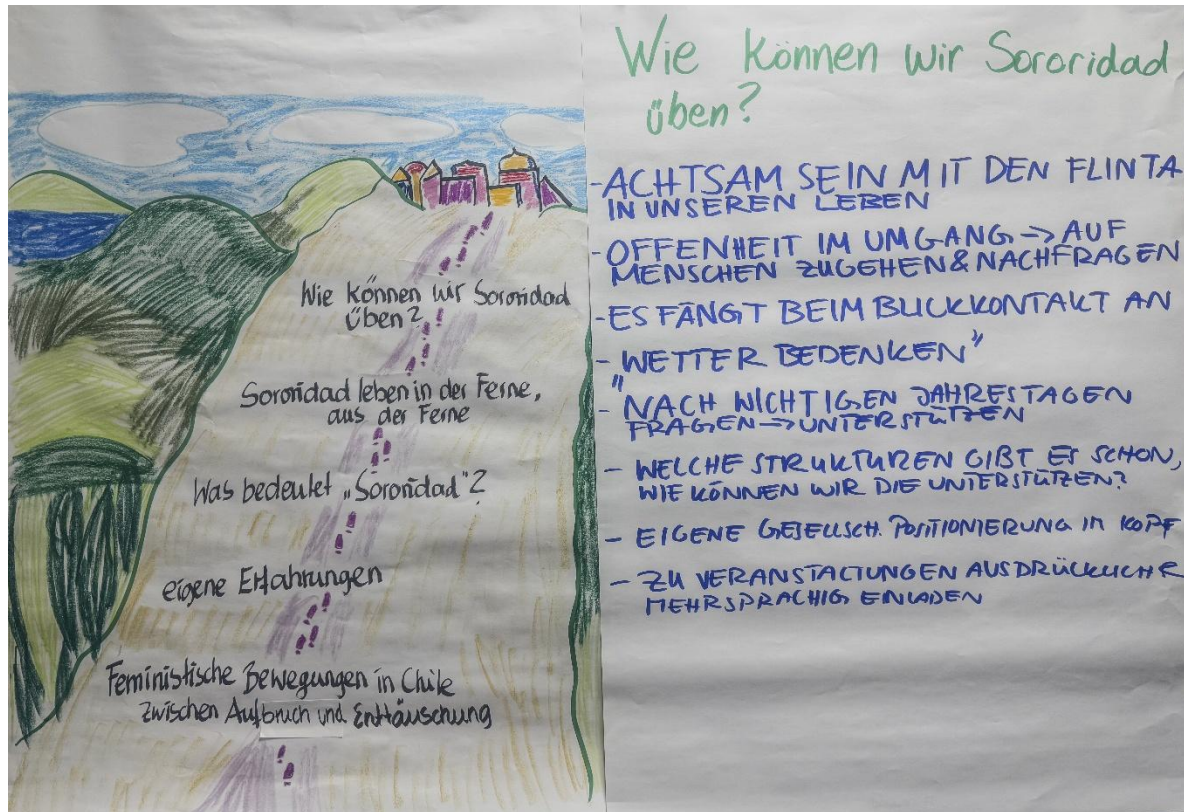 Wie können wir Sororidad
üben?
Sororidad leben in der Ferne,
aus der Ferne
Was bedeutet „Sororidad"?
eigene Erfahrungen
Feministische Bewegungen in Chile
zwischen Aufbruch und Enttäuschung
Wie können wir Sororidad
üben?
- ACHTSAM SEIN MIT DEN FLINTA
IN UNSEREN LEBEN
- OFFENHEIT IM UMGANG → AUF
MENSCHEN ZUGEHEN & NACHFRAGEN
- ES FÄNGT BEIM BLICKKONTAKT AN
- "WETTER BEDENKEN"
- NACH WICHTIGEN JAHRESTAGEN
FRAGEN → UNTERSTÜTZEN
- WELCHE STRUKTUREN GIBT ES SCHON,
WIE KÖNNEN WIR DIE UNTERSTÜTZEN?
- EIGENE GESELLSCH. POSITIONIERUNG IM KOPF
- ZU VERANSTALTUNGEN AUSDRÜCKLICHER
MEHRSPRACHIG EINLADEN